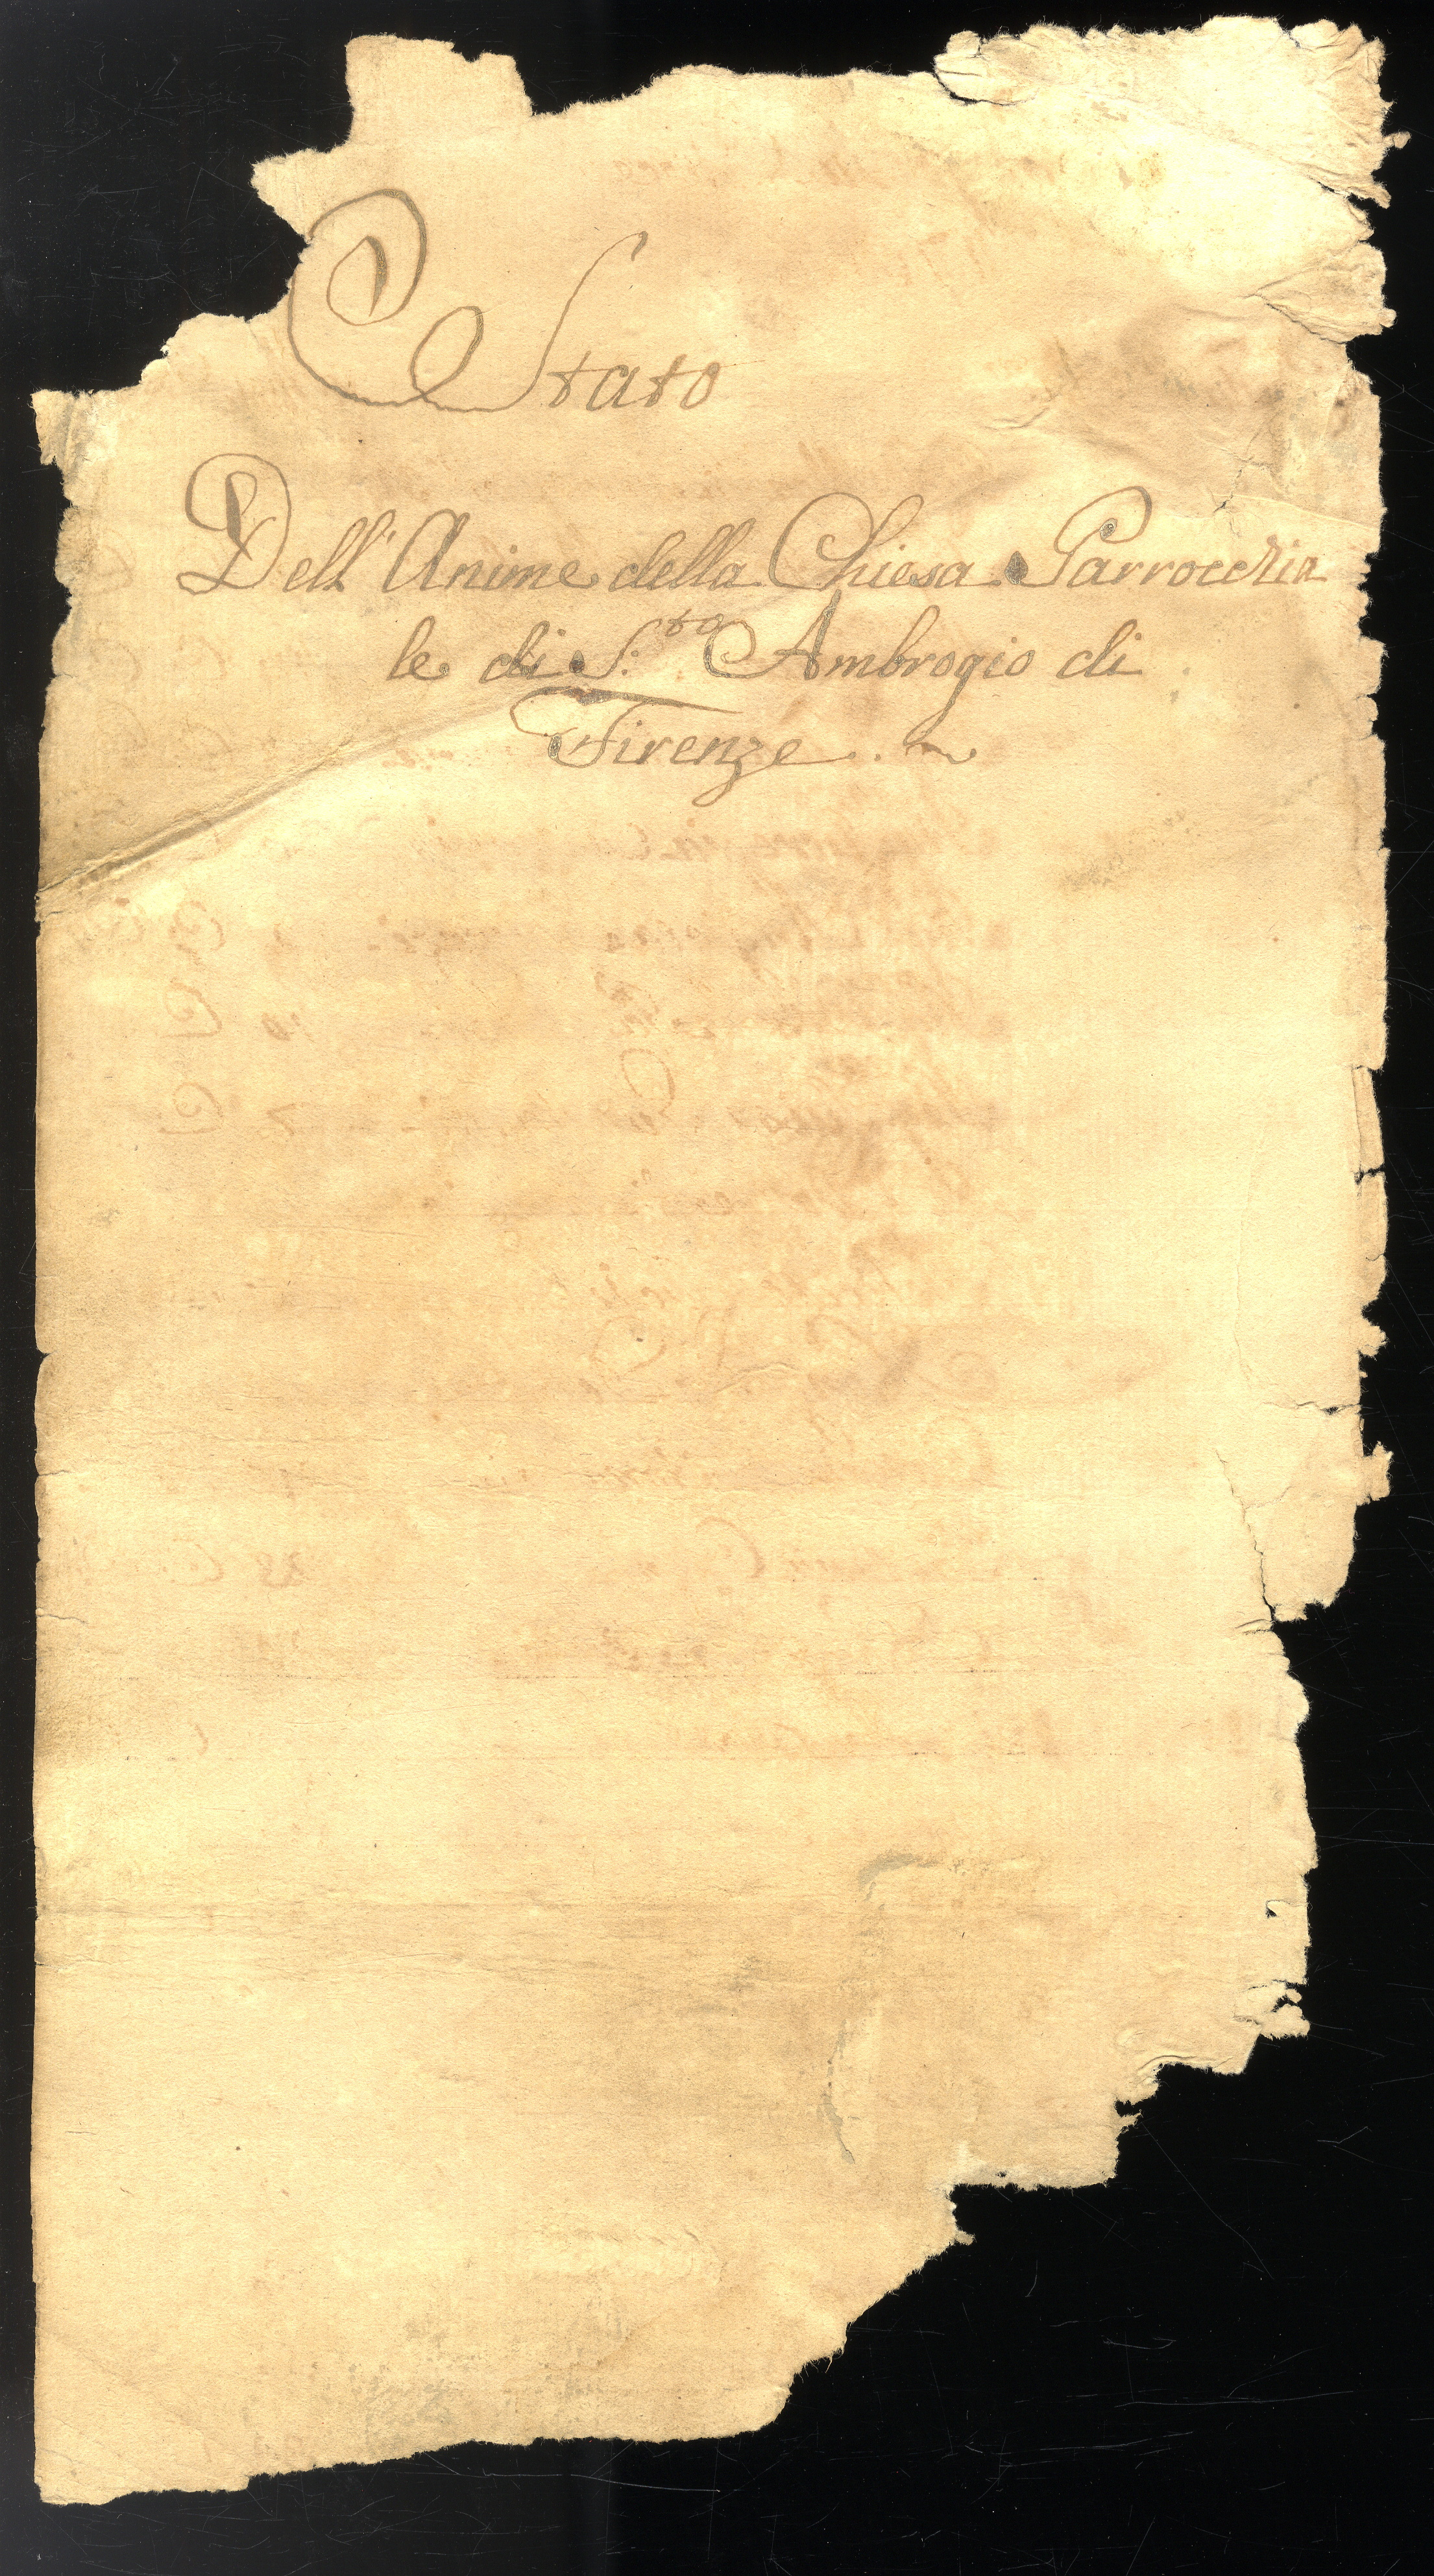 Stato
Dell' Anime della Chiesa Parrocchia
le di S.to Ambrogio di
Firenze.